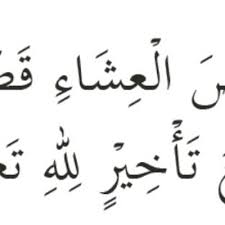 سَ الْعِشَاءِ قَ
تَأْخِيْرٍ لِلّٰهِ تَعَ